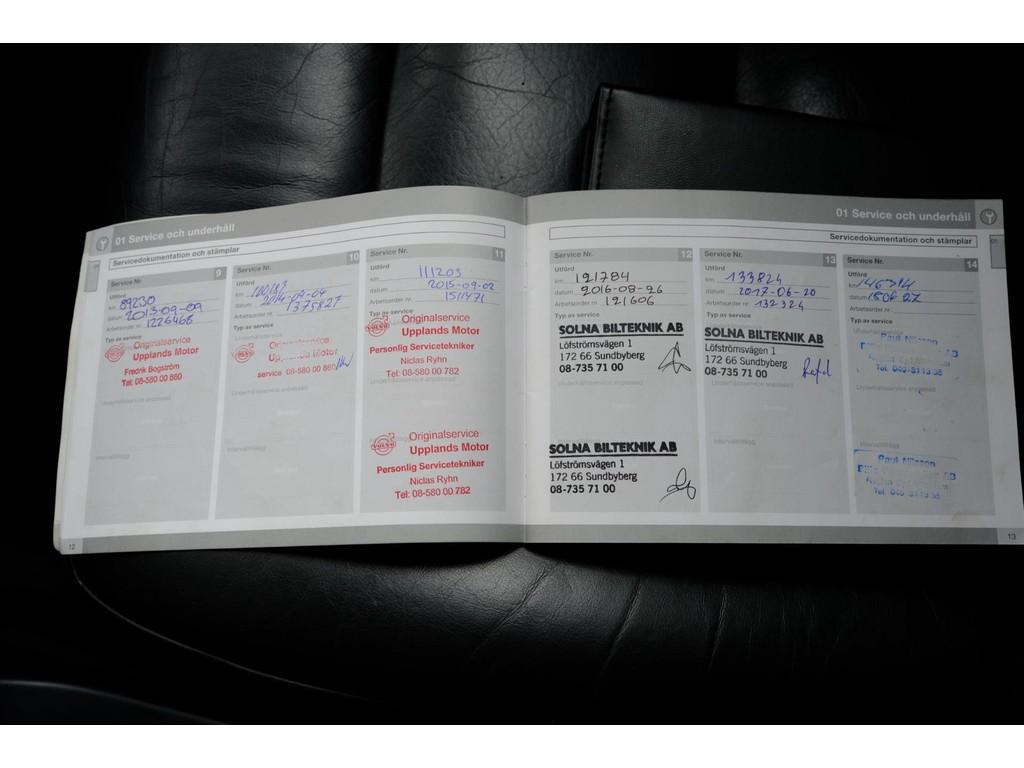 01 Service och underhåll
Servicedokumentation och stämplar
Service Nr. 9
Utförd
km 89230
datum 2013-09-09
Arbetsorder nr. 1226468
Typ av service
Originalservice
Upplands Motor
Fredrik Bogström
Tel: 08-580 00 860
Underhållsservice anpassad
Intervalltillägg
Service Nr. 10
Utförd
km
datum 2014-09-04
Arbetsorder nr. 1375827
Typ av service
Originalservice
Upplands Motor
service 08-580 00 860
Underhållsservice anpassad
Service Nr. 11
Utförd
km 111203
datum 2015-09-02
Arbetsorder nr. 1511471
Typ av service
VOLVO Originalservice
Upplands Motor
Personlig Servicetekniker
Niclas Ryhn
Tel: 08-580 00 782
Underhållsservice anpassad
VOLVO Originalservice
Upplands Motor
Personlig Servicetekniker
Niclas Ryhn
Tel: 08-580 00 782
12
01 Service och underhåll
Servicedokumentation och stämplar
01
Service Nr. 12
Utförd
km 121784
datum 2016-08-26
Arbetsorder nr. 121606
Typ av service
SOLNA BILTEKNIK AB
Löfströmsvägen 1
172 66 Sundbyberg
08-735 71 00
Underhållsservice anpassad
SOLNA BILTEKNIK AB
Löfströmsvägen 1
172 66 Sundbyberg
08-735 71 00
Service Nr. 13
Utförd
km 133824
datum 2017-06-20
Arbetsorder nr. 132324
Typ av service
SOLNA BILTEKNIK AB
Löfströmsvägen 1
172 66 Sundbyberg
08-735 71 00
Underhållsservice anpassad
Intervalltillägg
Service Nr. 14
Utförd
km 146714
datum
Arbetsorder nr.
Typ av service
Paul Nilsson
Underhållsservice anpassad
Intervalltillägg
Paul Nilsson
13